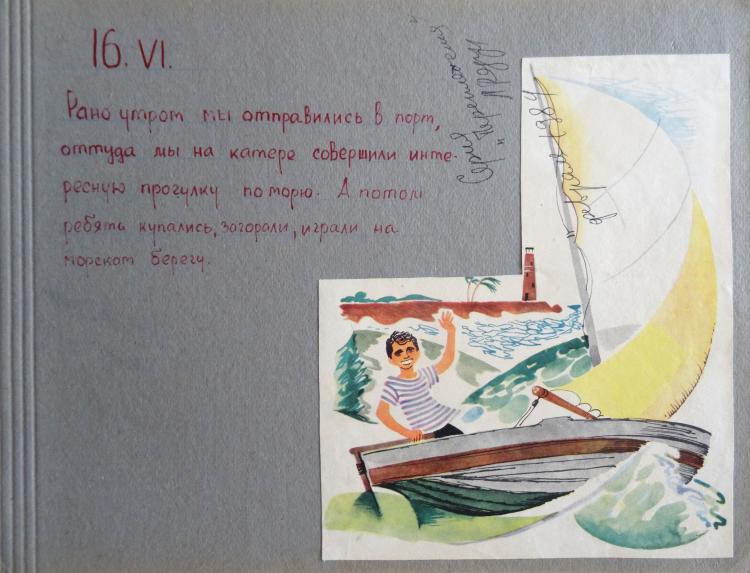 16.VI.
Рано утром мы отправились в порт,
оттуда мы на катере совершили инте-
ресную прогулку по морю. А потом
ребята купались, загорали, играли на
морском берегу.
Серия
"
февраля 1984